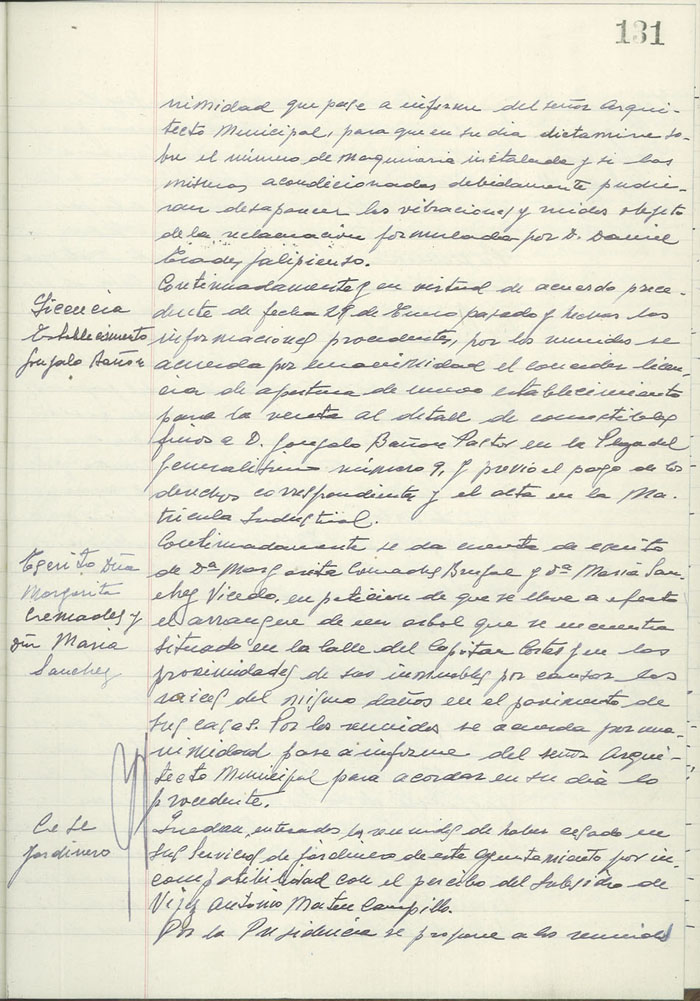 131
nimidad que pase a informe del señor Arqui-
tecto Municipal, para que en su dia dictamine so-
bre el número de maquinaria instalada y si las
mismas acondicionadas debidamente pudie-
ran desaparecer las vibraciones y ruidos objeto
de la reclamación formulada por D. Daniel
Galipienso.
Licencia
Establecimiento
Gonzalo Bañon
Continuadamente y en virtud de acuerdo prece-
dente de fecha 29 de Enero pasado y hechas las
informaciones procedentes, por los reunidos se
acuerda por unanimidad el conceder licen-
cia de apertura de nuevo establecimiento
para la venta al detall de comestibles
finos a D. Gonzalo Bañon Pastor en la Plaza del
Generalisimo número 9, y previo el pago de los
derechos correspondientes y el alta en la Ma-
tricula Industrial.
Escrito Dña
Margarita
Cremades y
Dña Maria
Sanchez
Continuadamente se da cuenta de escrito
de Dª Margarita Cremades Brufal y Dª Maria San-
chez Vicedo, en peticion de que se lleve a efecto
el arranque de un arbol que se encuentra
situado en la calle del Capitan Cortes en las
proximidades de sus inmuebles por causar las
raices del mismo daños en el pavimento de
sus casas. Por los reunidos se acuerda por una-
nimidad pase a informe del señor Arqui-
tecto Municipal para acordar en su dia lo
procedente.
Cese
Jardinero
Quedan enterados los reunidos de haber cesado en
sus servicios de jardinero de este Ayuntamiento por in-
compatibilidad con el percibo del Subsidio de
Vejez Antonio Campillo.
Por la Presidencia se propone a los reunidos